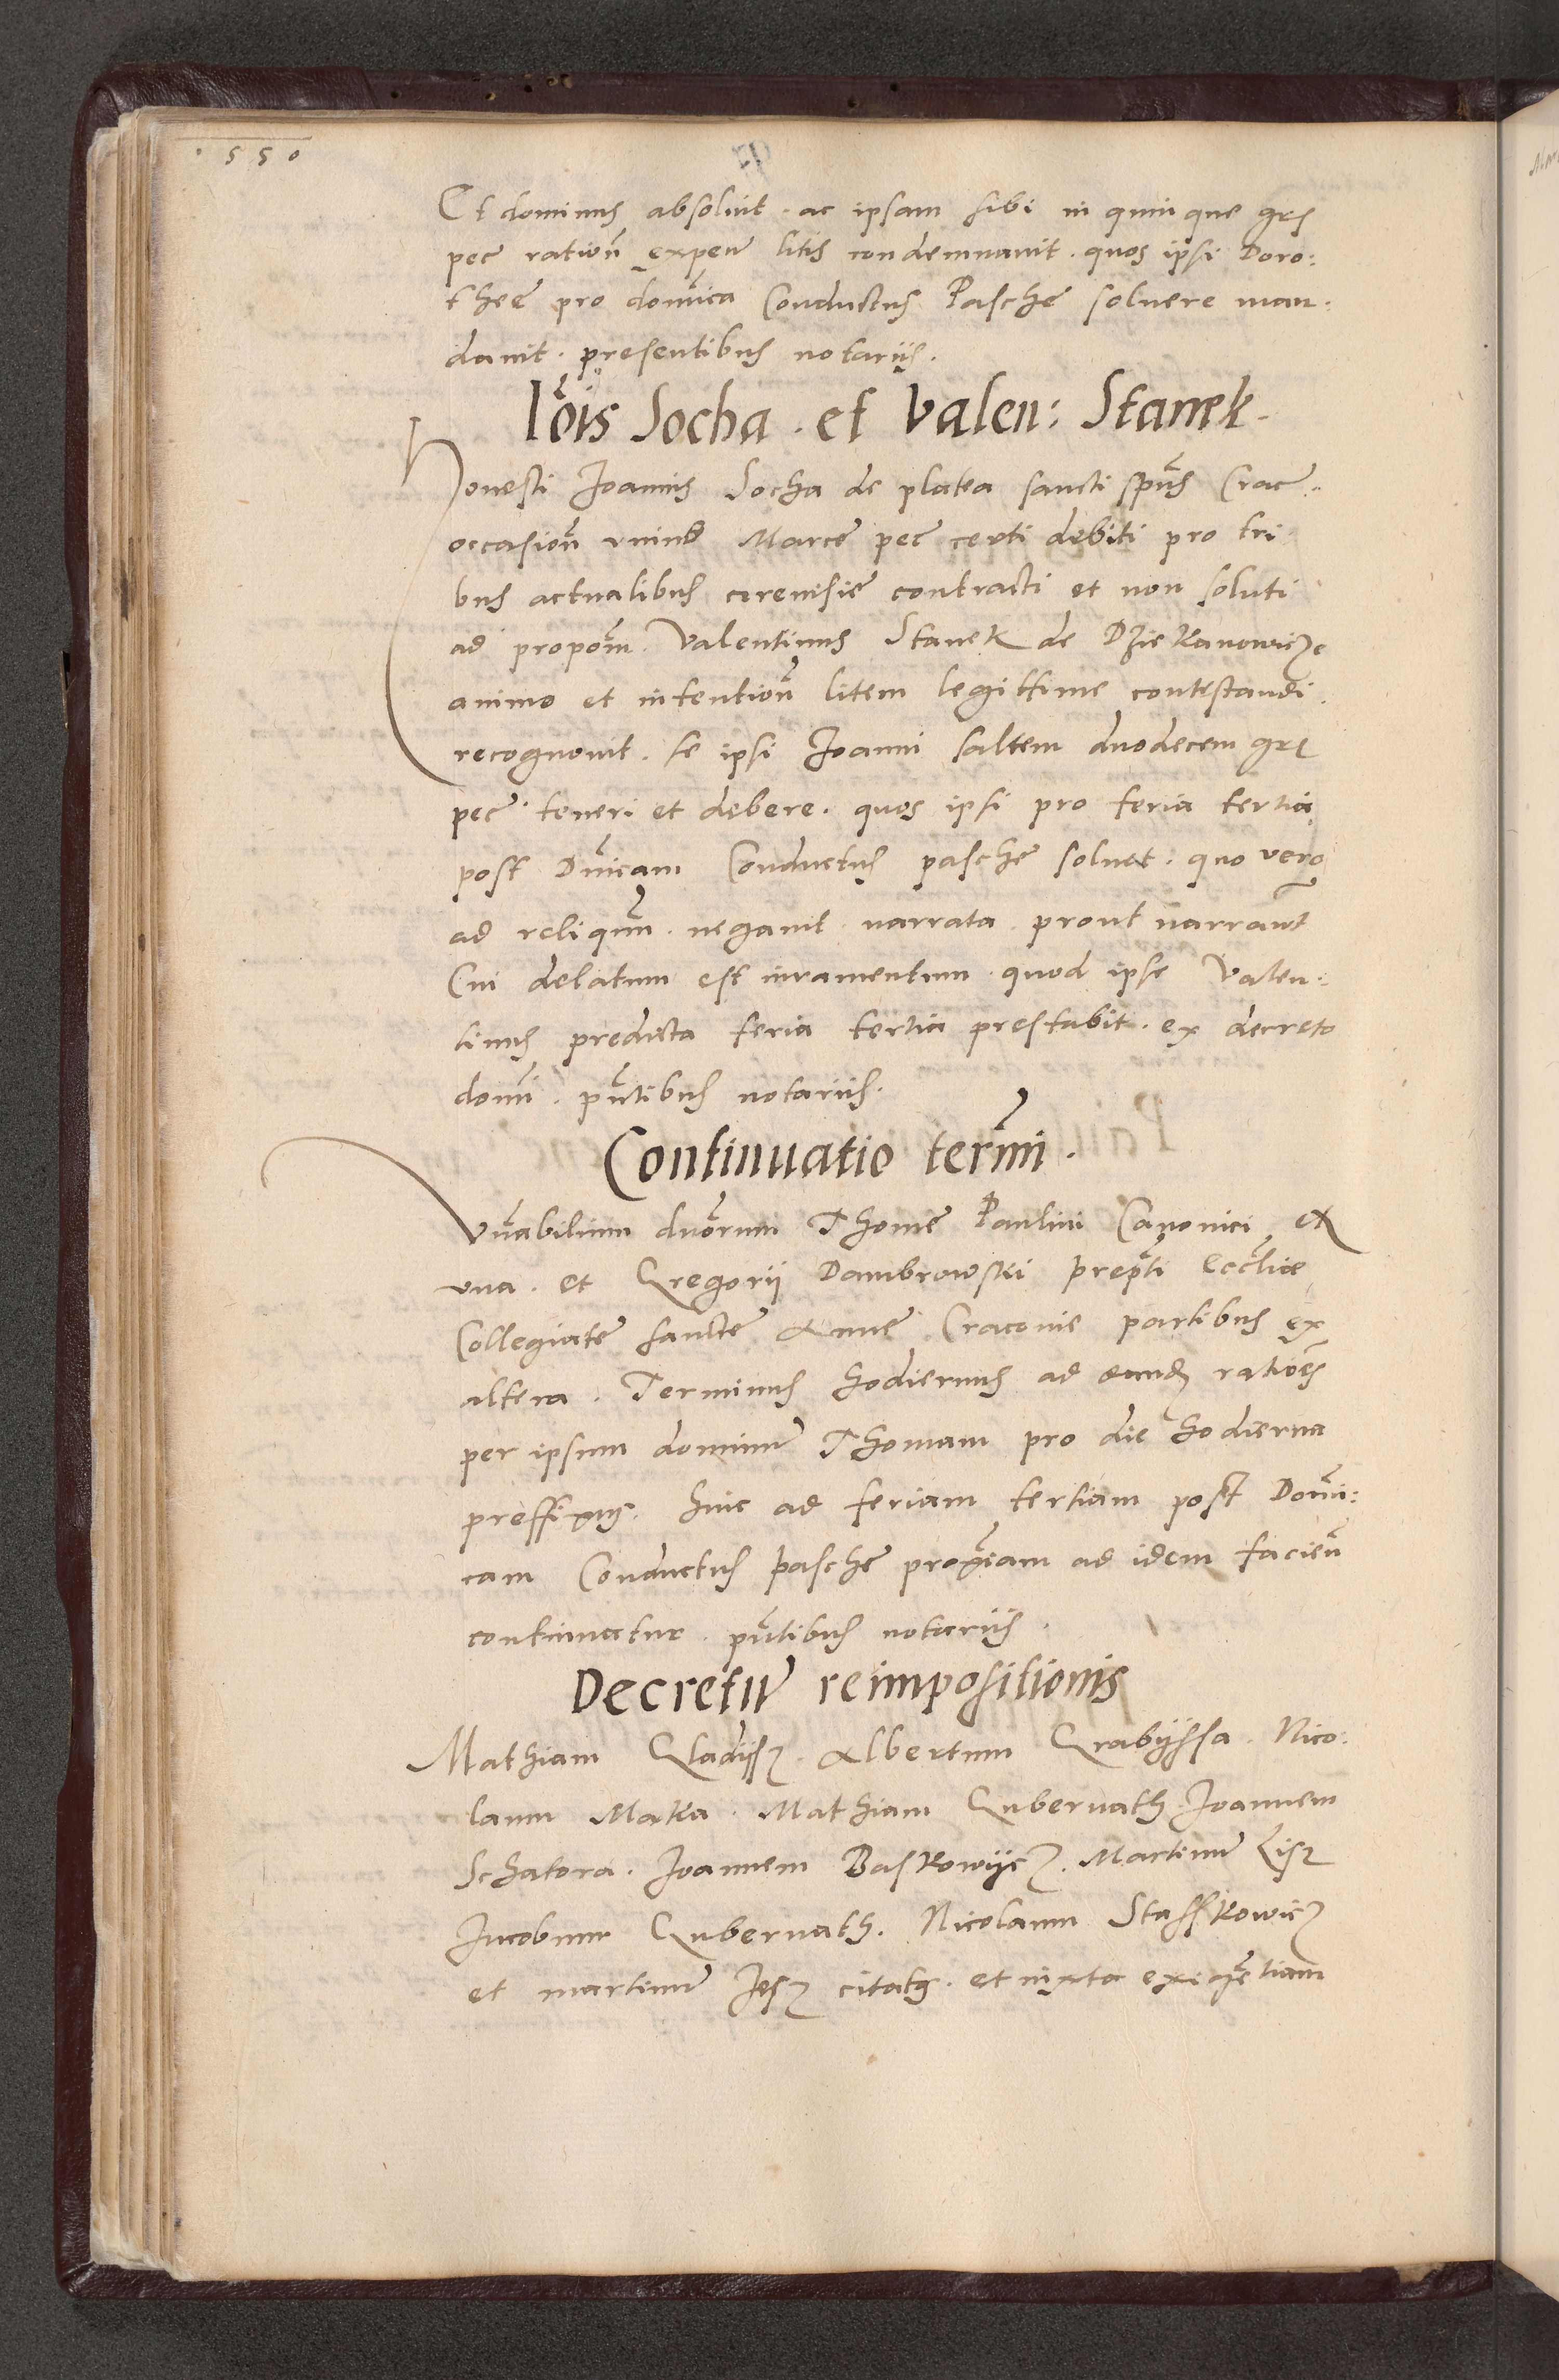 550
Et dominus absoluit . ac ipsam sibi in quinque grs
pec̃ ration̄ expen̄ litis condemnauit . quos ipsi Doro:
theę pro domīca Conductus Paschę soluere man.
dauit . presentibus notarijs .
Iõis Socha . et Valen: Stanek .
Honesti Joannis Socha de platea sancti spūs Crac̃ .
occasion̄ vnius Marcę pec̃ certi debiti pro tri
bus actualibus cereuisię contracti et non soluti
ad propõm . Valentinus Stanek de Dziekanowicze
animo et intention̄ litem legittime contestandi .
recognouit . se ipsi Joanni saltem duodecem grs
pec̃ teneri et debere . quos ipsi pro feria tertia
post Dnīcam Conductus paschę soluet . quo vero
ad reliquū . negauit narrata . prout narrant̃
Cui delatum est iuramentum . quod ipse Valen:
tinus predicta feria tertia prestabit . ex decreto
domī . pñtibus notariis .
Continuatio termī .
Vñabilium dnõrum Thomę Paulini Canonici ex
vna . et Gregorij Dambrowski prepti Eccliæ
Collegiatę sanctę Annę Cracouię partibus ex
altera . Terminus hodiernus ad dand rationēs
per ipsum dominū Thomam pro die hodierna
preffixus . hinc ad feriam tertiam post Domī:
cam Conductus paschę proximam ad idem facien̄
continuatur . pñtibus notariis .
Decretū reimpositionis
Mathiam Gladijsz . Albertum Grabijssa . Nico:
laum Maka . Mathiam Gubernath . Joannem
Schatora . Joannem Baskowijcz . Martinū Lisz
Jacobum Gubernath . Nicolaum Staszkowicz
et martinū Jesz citatus . et iuxta exigẽtiam